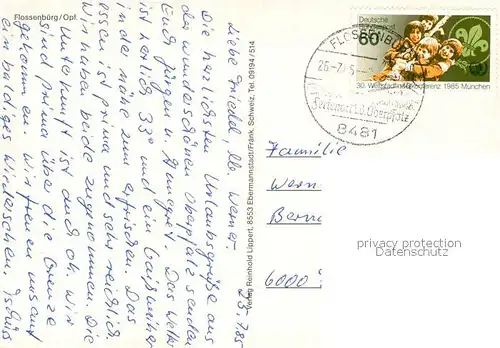 Flossenbürg/Opf.
23.7.85
Liebe Friedel, lb. Werner
Die herzlichsten Urlaubsgrüße aus
der wunderschönen Oberpfalz senden
Euch Jürgen u. Annegret. Das Wetter
ist herrlich 33° und ein
in der Nähe zum erfrischen. Das
Essen ist prima und sehr reichlich.
Wir haben beide zugenommen. Die
Unterkunft ist auch ok. Wir
sind prima über die Grenze
gekommen. Wir freuen uns auf
ein baldiges Wiedersehen.
Verlag Reinhold Lippert, 8553 Ebermannstadt/Fränk. Schweiz, Tel. 09194/514
Deutsche
Bundespost
60
30. Weltpfadfinderkonferenz 1985 München
FLOSSENBÜRG
8481
Familie
Wern
Bern
6000
privacy protection
Datenschutz